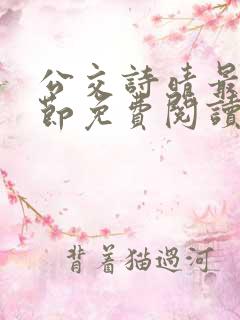 公交詩晴最
節免費閱讀
背着猫過河